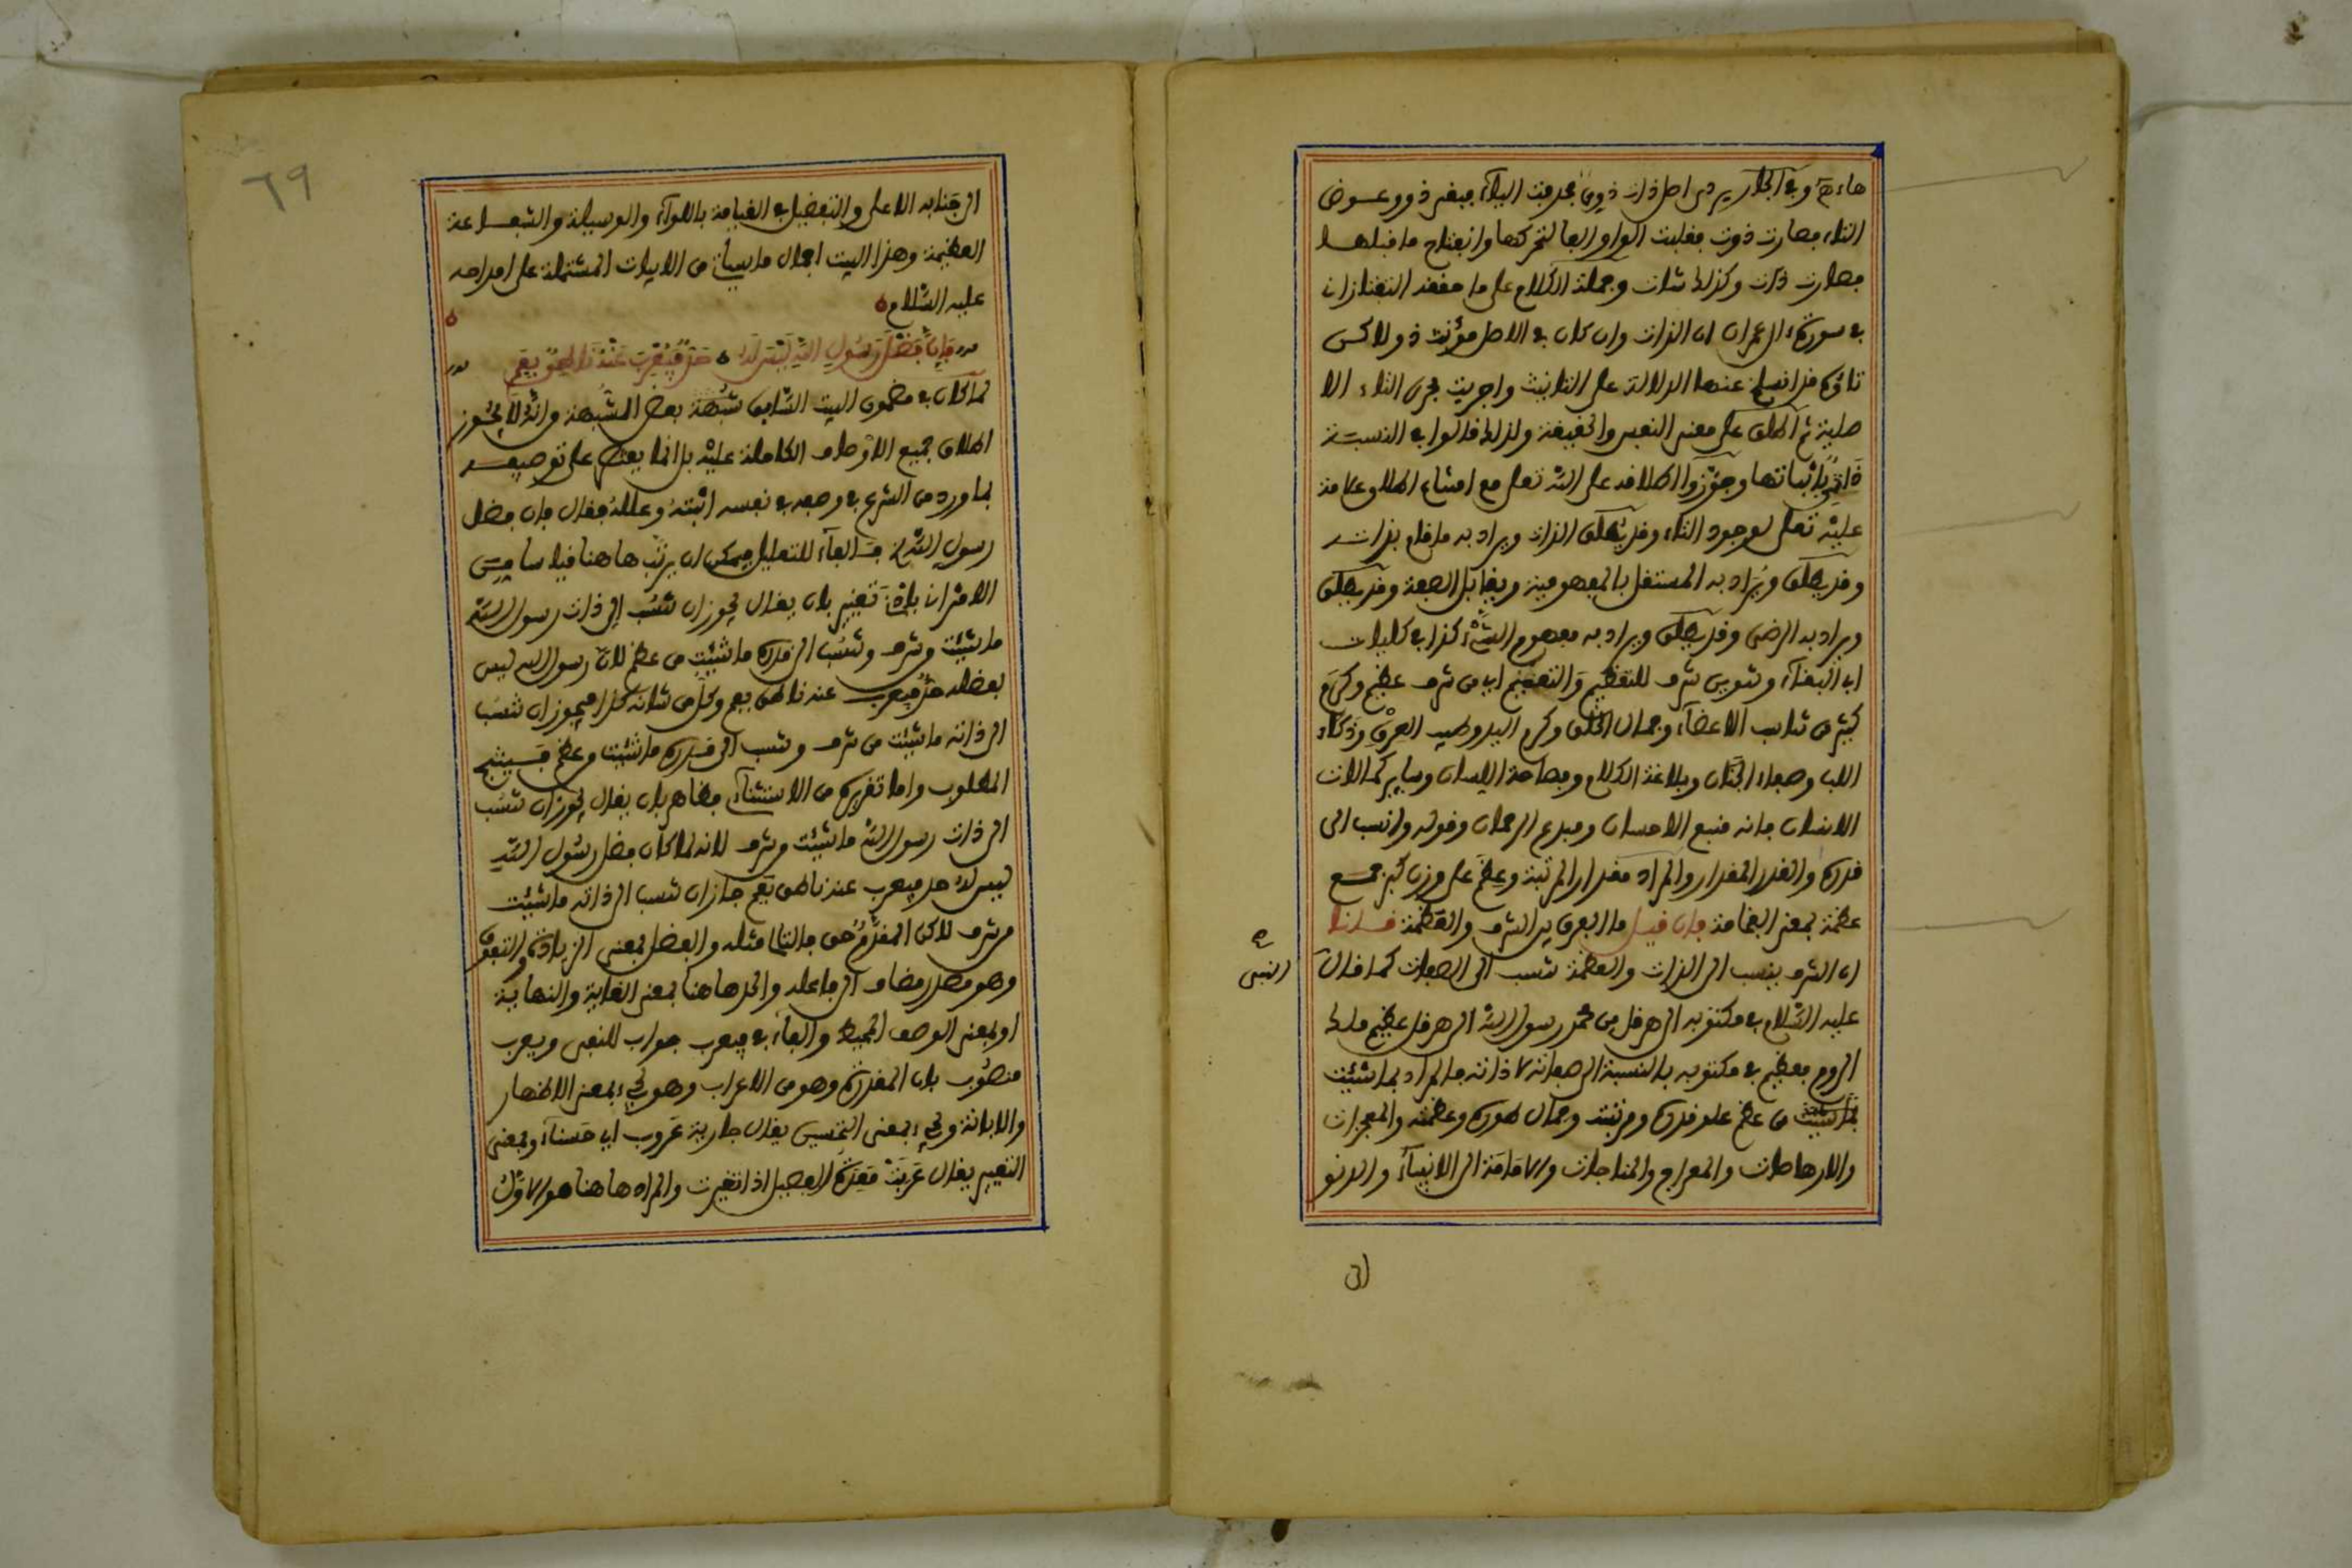 هاء وفي الجاربردي اصل ذات ذوي فحذفت الياء فبقي ذو وعوض
التاء فصارت ذوت فقلبت الواو الفا لتحركها وانفتاح ما قبلها
فصارت ذات وكذلك شات وجملة الكلام على ما حققه التفتازاني
في سورة ال عمران ان الذات وان كان في الاصل مؤنث ذو لاكن
تاؤه قد انسلخ عنها الدلالة على التانيث واجريت مجرى التاء الا
صلية ثم اطلق على معنى النفس والحقيقة ولذلك قالوا في النسبة
ذاتي باثباتها وجوزوا اطلاقه على الله تعلى مع امتناع اطلاق علامة
عليه تعلى لوجود التاء وقد يطلق الذات ويراد به ما قام بذاته
وقد يطلق ويراد به المستقل بالمفهومية ويقابل الصفة وقد يطلق
ويراد به الرضى وقد يطلق ويراد به مفهوم الشيء كذا في كليات
ابي البقاء وتنوين شرف للتعظيم والتفخيم اي من شرف عظيم وكرم
كثير من تناسب الاعضاء وجمال الخلق وكرم اليد وطيب العرق وذكاء
اللب وصفاء الجنان وبلاغة الكلام وفصاحة اللسان وساير كمالات
الانسان فانه منبع الاحسان ومبدع الرحمان وقوله وانسب الى
قدره والقدر المقدار والمراد مقدار المرتبة وعظم على وزن كبر جمع
عظمة بمعنى الفخامة فان قيل ما الفرق بين الشرف والعظمة قلنا
ان الشرف ينسب الى الذات والعظمة تنسب الى الصفات كما قال
النبي
عليه السلام في مكتوبه الى هرقل من محمد رسول الله الى هرقل عظيم ملك
الروم فعظيم في مكتوبه بالنسبة الى صفاته لا ذاته فالمراد بما شئت
بما شئت من عظم علو قدره ومرتبته وجمال طوره وعظمته والمعجزات
والارهاصات والمعراج والمناجات والامامة الى الانبياء والدنو
الى
٦٩
الى جنابه الاعلى والتفضيل في القيامة باللواء والوسيلة والشفاعة
العظيمة وهذا البيت اجمال ما سيأتي من الابيات المشتملة على امداحه
عليه السلام
فان فضل رسول الله ليس له حد فيعرب عنه ناطق بفم
لما كان في مضمون البيت السابق شبهة بعض المشبهة وانه لا يجوز
اطلاق جميع الاوصاف الكاملة عليه بل انما يقتصر على توصيفه
بما ورد من الشرع في وصفه في نفسه اثبته وعلله فقال فان فضل
رسول الله فالفاء للتعليل فيمكن ان يرتب هاهنا قياسا من
الاقتراني بادنى تغيير بان يقال يجوز ان تنسب الى ذات رسول الله
ما شئت من شرف وتنسب الى قدره ما شئت من عظم لان رسول الله ليس
بفضله حد فيعرب عنه ناطق بفم وكل من شانه كذا فيجوز ان تنسب
الى ذاته ما شئت من شرف وتنسب الى قدره ما شئت من عظم فسينتج
المطلوب واما تقريره من الاستثناء فظاهر بان يقال يجوز ان تنسب
الى ذات رسول الله ما شئت من شرف لانه لما كان فضل رسول الله
ليس له حد فيعرب عنه ناطق بفم جاز ان تنسب الى ذاته ما شئت
من شرف لاكن المقدم حق فالتالي مثله والفضل بمعنى الزيادة والتفوق
وهو مصدر مضاف الى فاعله والحد هاهنا بمعنى الغاية والنهاية
او بمعنى الوصف المحيط والفاء في فيعرب جواب للنفي ويعرب
منصوب بان المقدرة وهو من الاعراب وهو يجيء بمعنى الاظهار
والابانة ويجيء بمعنى التحسين يقال جارية عروب اي حسناء وبمعنى
التغيير يقال عربت معدة الفصيل اذا تغيرت والمراد هاهنا هو الاول